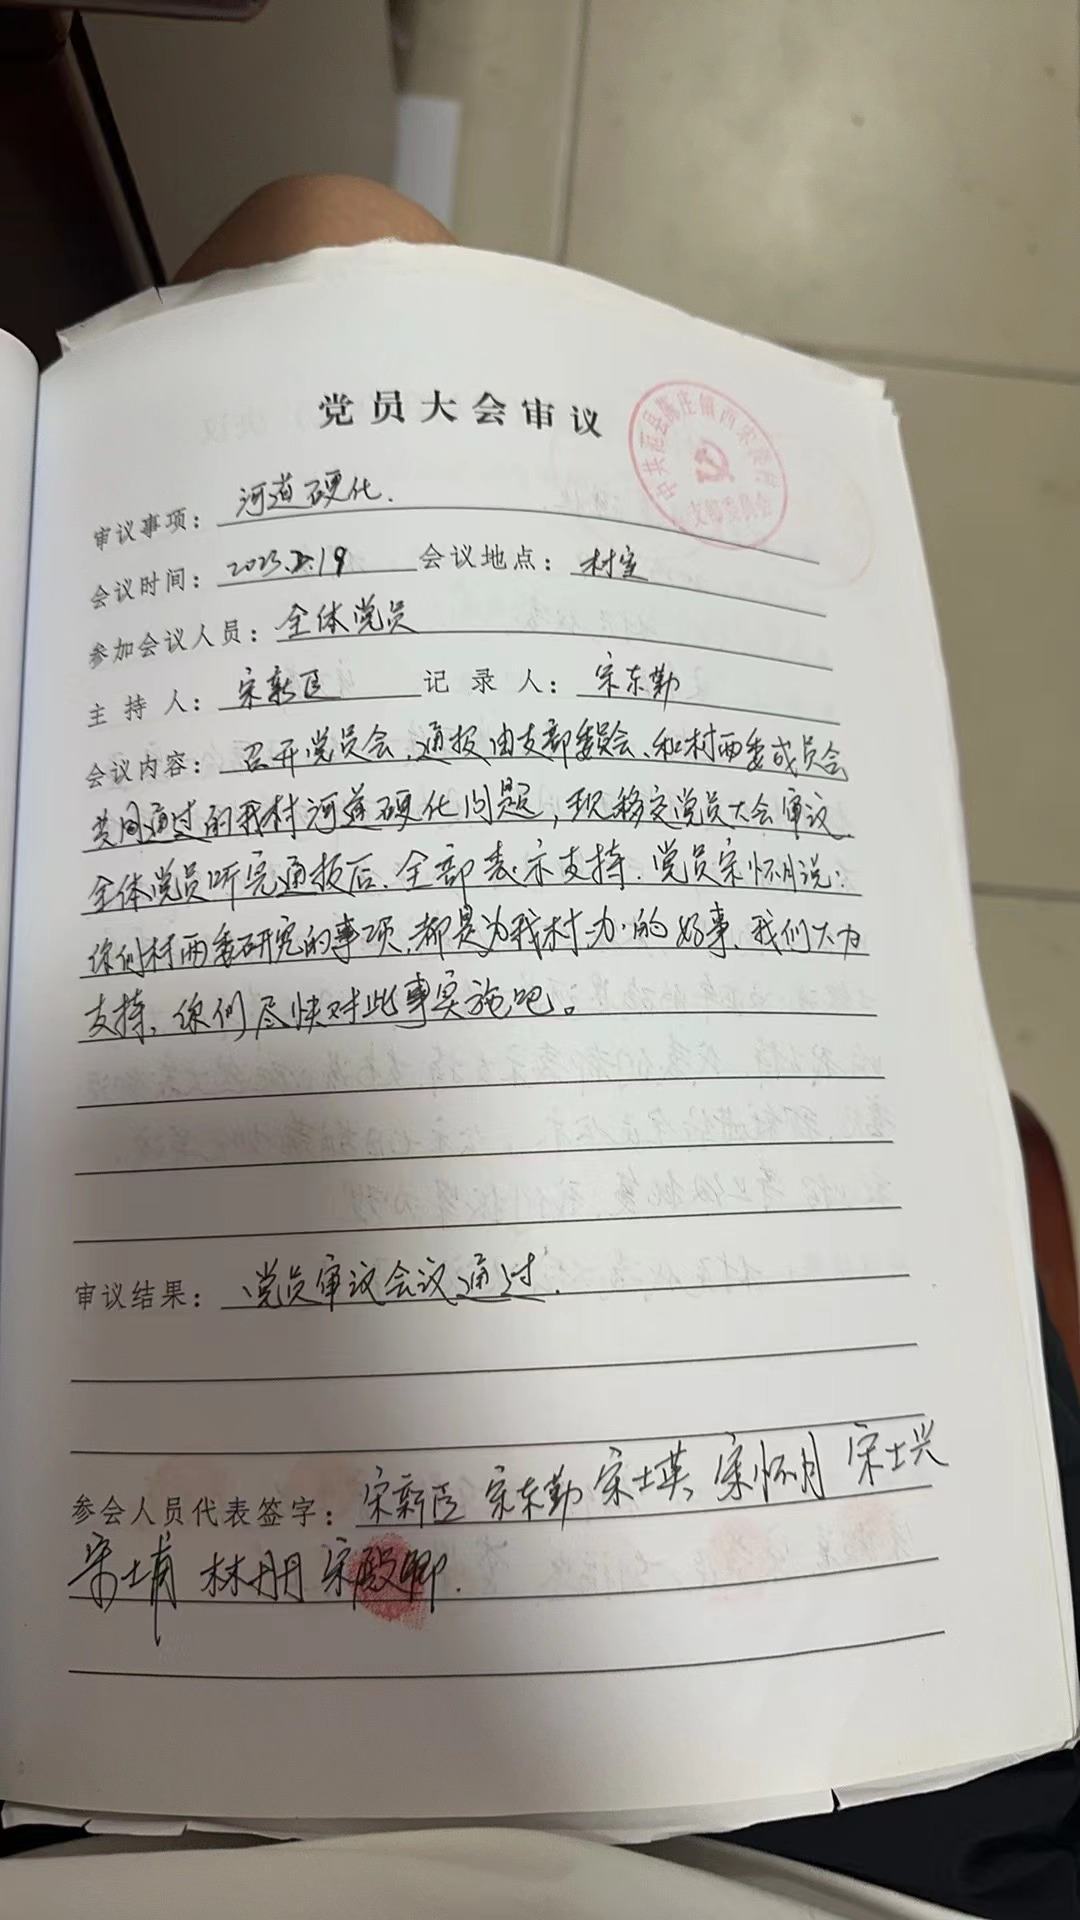 党员大会审议
中共范县陈庄镇西宋楼村
支部委员会
审议事项：河道硬化.
会议时间：2023.2.19 会议地点：村室
参加会议人员：全体党员
主持人：宋新臣 记录人：宋东勤
会议内容：召开党员会,通报由支部委员会、和村两委成员会
共同通过的我村河道硬化问题,现移交党员大会审议.
全体党员听完通报后.全部表示支持.党员宋怀月说:
你们村两委研究的事项.都是为我村办的好事.我们大力
支持,你们尽快对此事实施吧。
审议结果：党员审议会议通过.
参会人员代表签字：宋新臣 宋东勤 宋士英 宋怀月 宋士兴
宋士 林朋 宋殿卿.